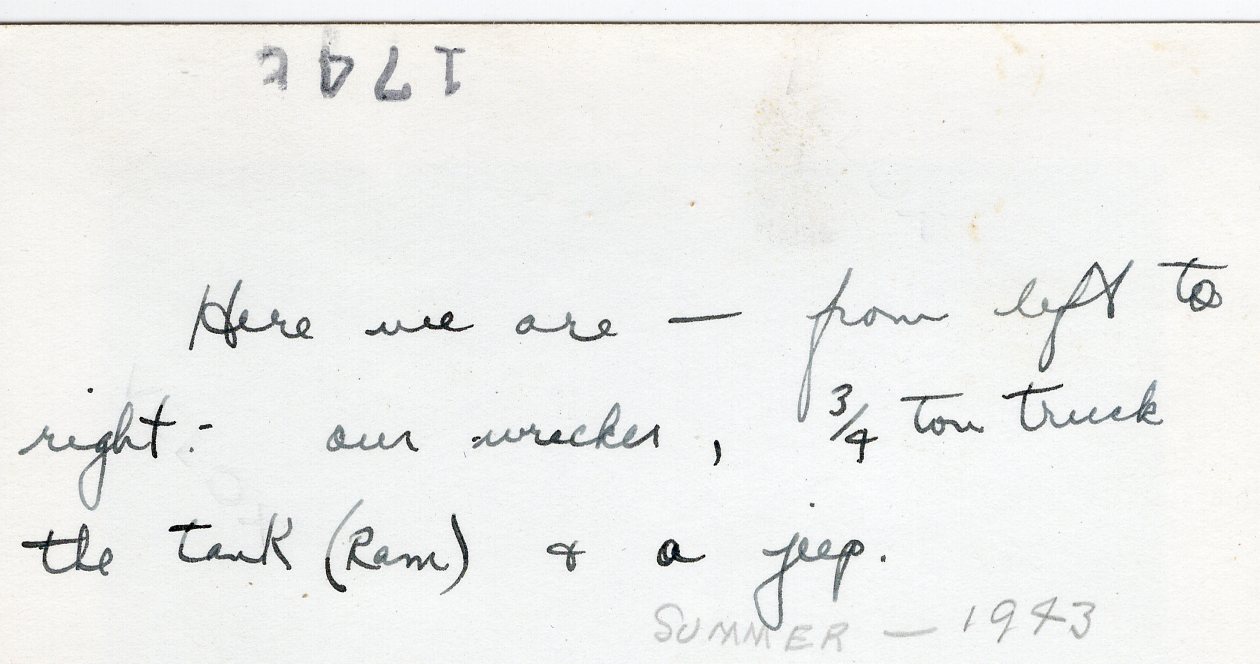 174
Here we are — from left to
right:- our wrecker, 3/4 ton truck
the tank (Ram) & a jeep.
SUMMER — 1943